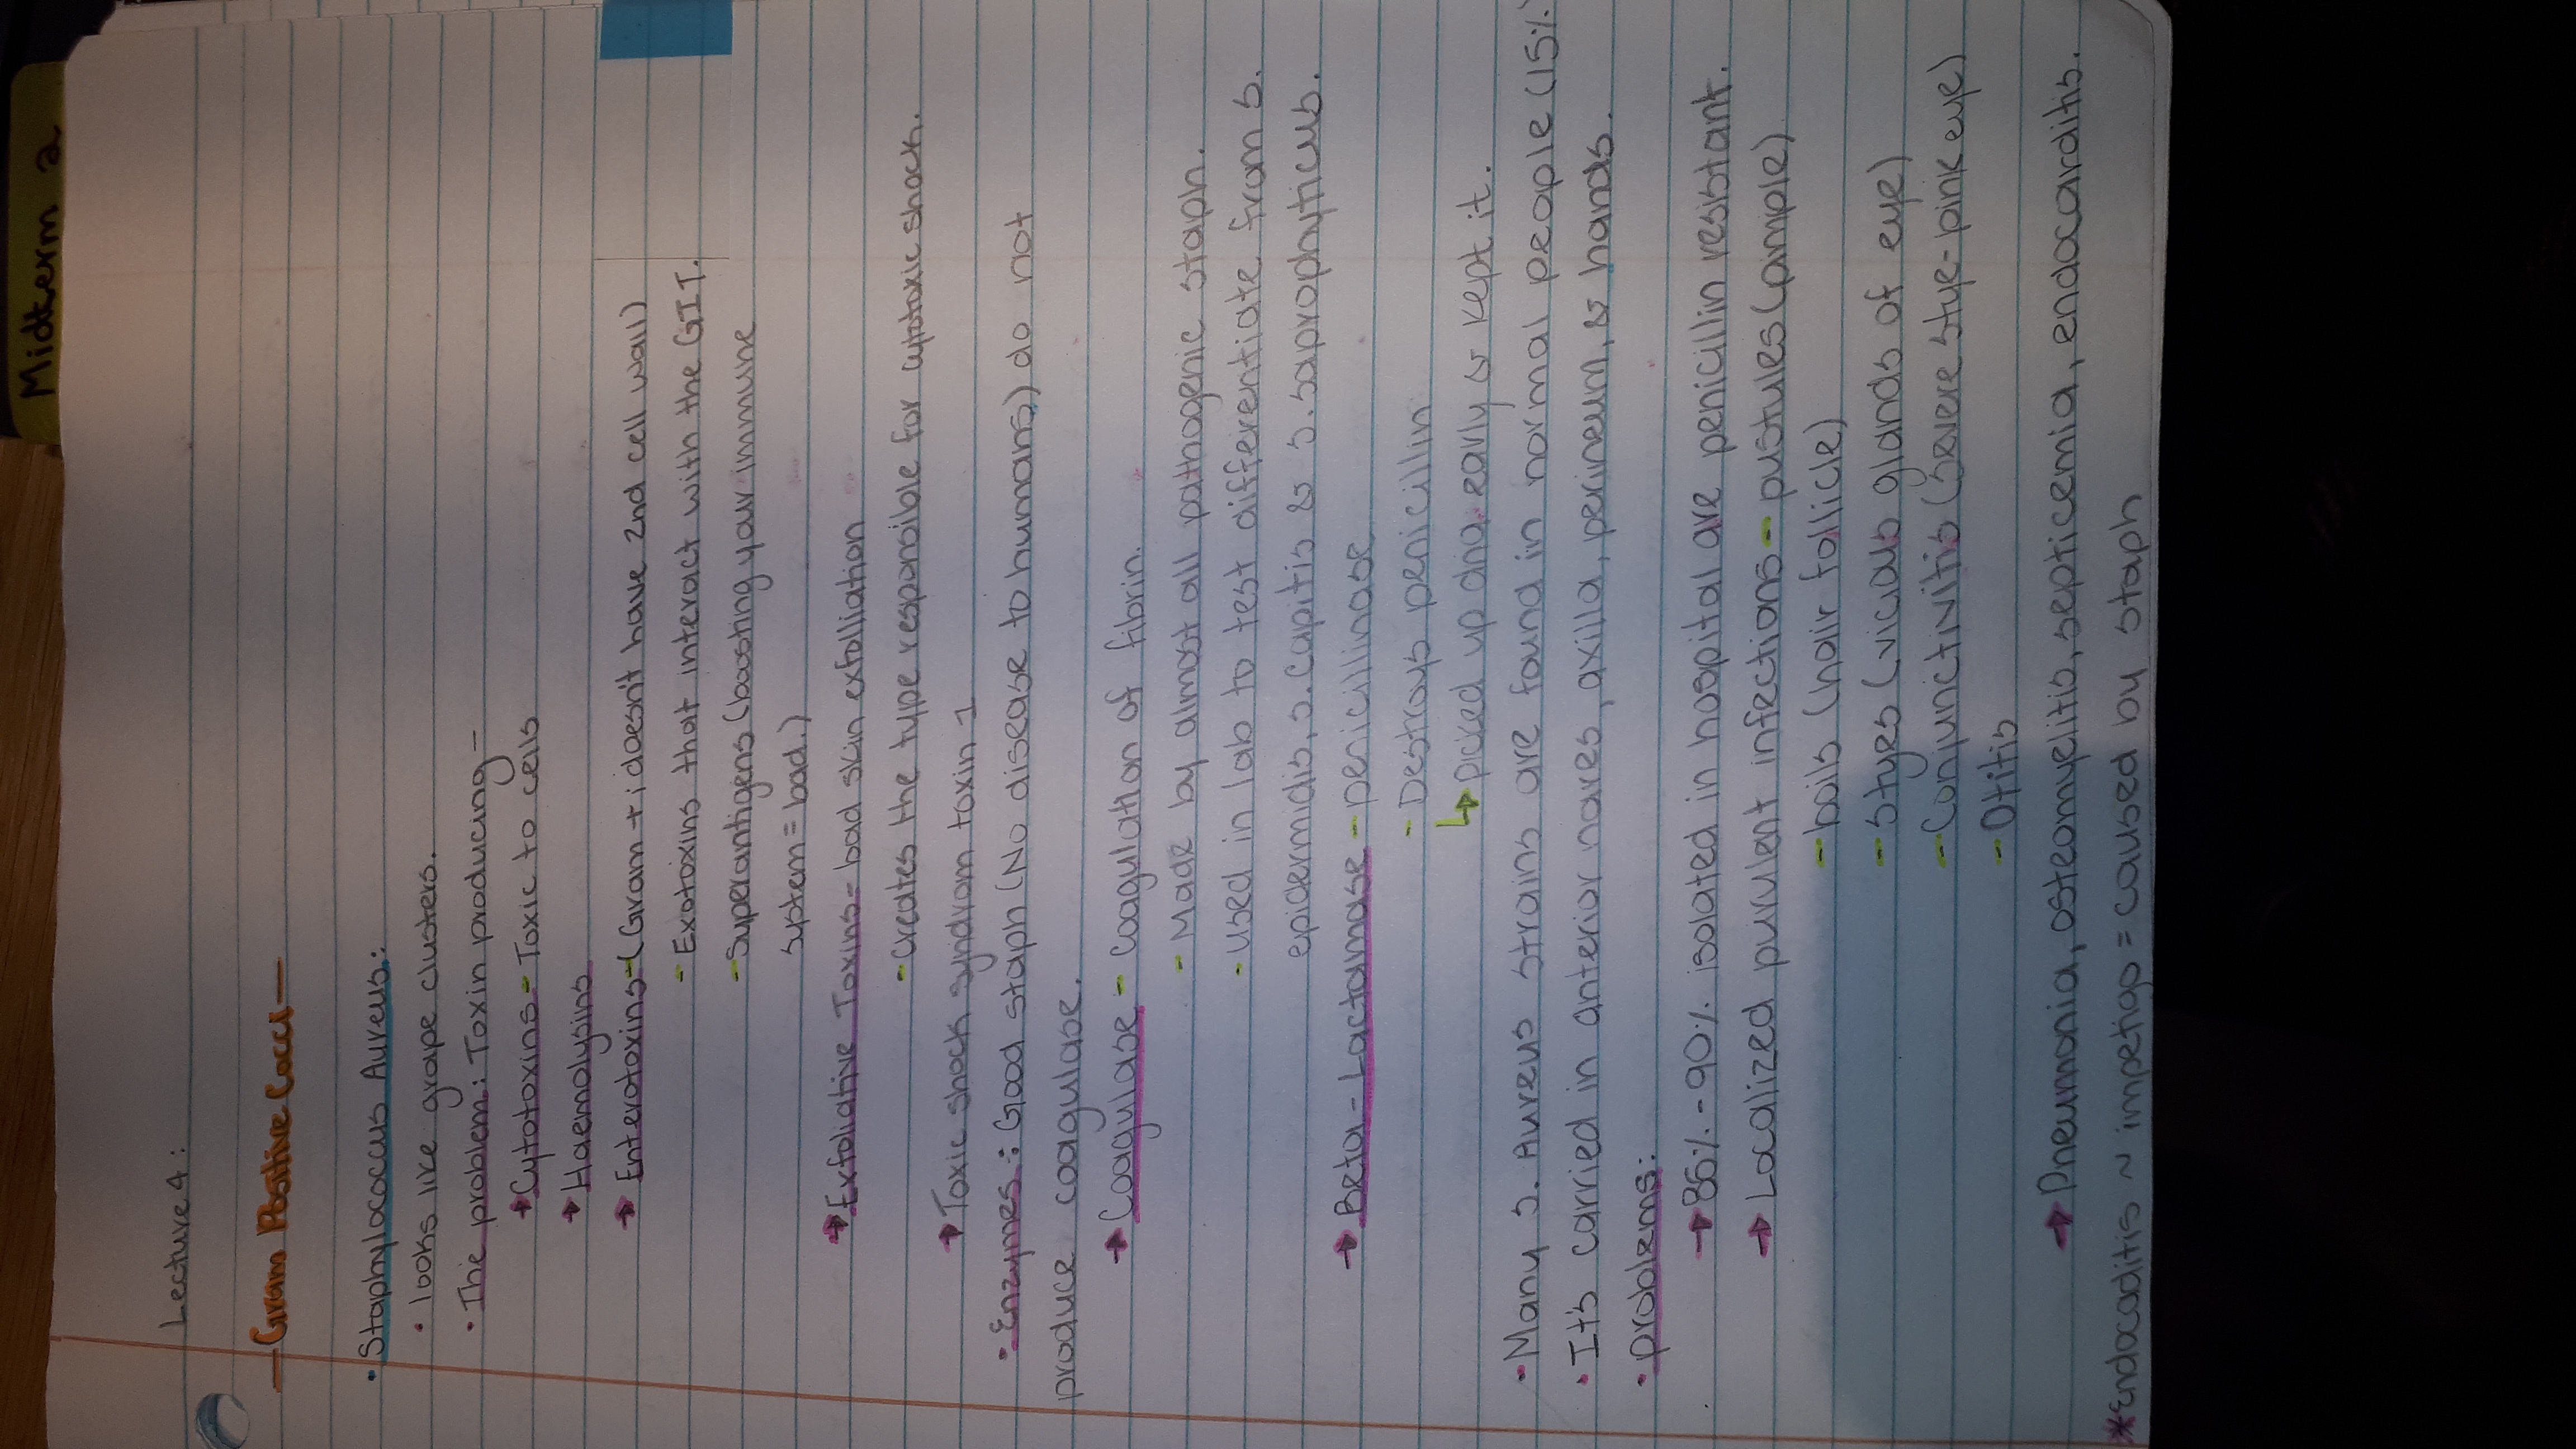 Midterm 2
Lecture 4:
— Gram Postive Cocci —
• Staphylococcus Aureus:
• looks like grape clusters.
• The problem: Toxin producing -
→ Cytotoxins - Toxic to cells
→ Haemolysins
→ Enterotoxins - (Gram + ; doesn't have 2nd cell wall)
- Exotoxins that interact with the GIT.
- Superantigens (boosting your immune
system = bad.)
→ Exfoliative Toxins - bad skin exfolliation
- creates the type responsible for cytotoxic shock.
→ Toxic shock syndrom toxin - 1
• Enzymes: Good staph (No disease to humans) do not
produce coagulase.
→ Coagulase - Coagulation of fibrin.
- Made by almost all pathogenic staph.
- used in lab to test differentiate from S.
epidermidis, S. capitis & S. saprophyticus.
→ Beta-Lactamase - penicillinase
- Destroys penicillin
↳ picked up dna early & kept it.
• Many S. Aureus strains are found in normal people (15%)
• It's carried in anterior nares, axilla, perineum, & hands.
• problems:
→ 85%-90% isolated in hospital are penicillin resistant.
→ Localized purulent infections - pustules (pimple)
- boils (hair follicle)
- styes (vicious glands of eye)
- Conjunctivitis (severe stye-pink eye)
- Otitis
→ Pneumonia, osteomyelitis, septicemia, endocarditis.
*Endocaditis ~ impetigo = caused by staph